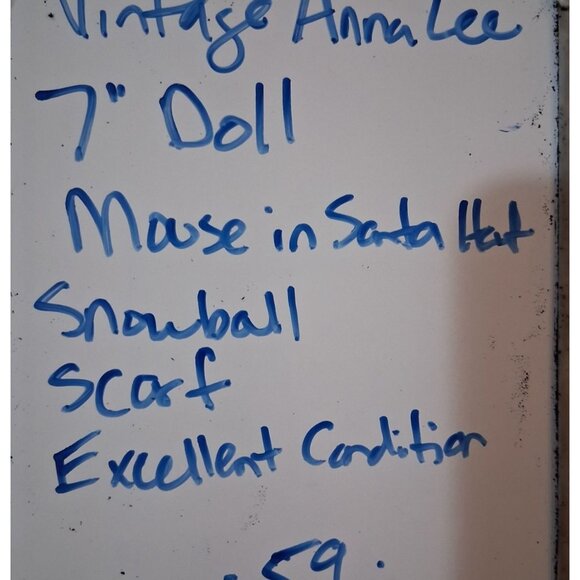 Vintage AnnaLee
7" Doll
Mouse in Santa Hat
Snowball
Scarf
Excellent Condition
. 59 .